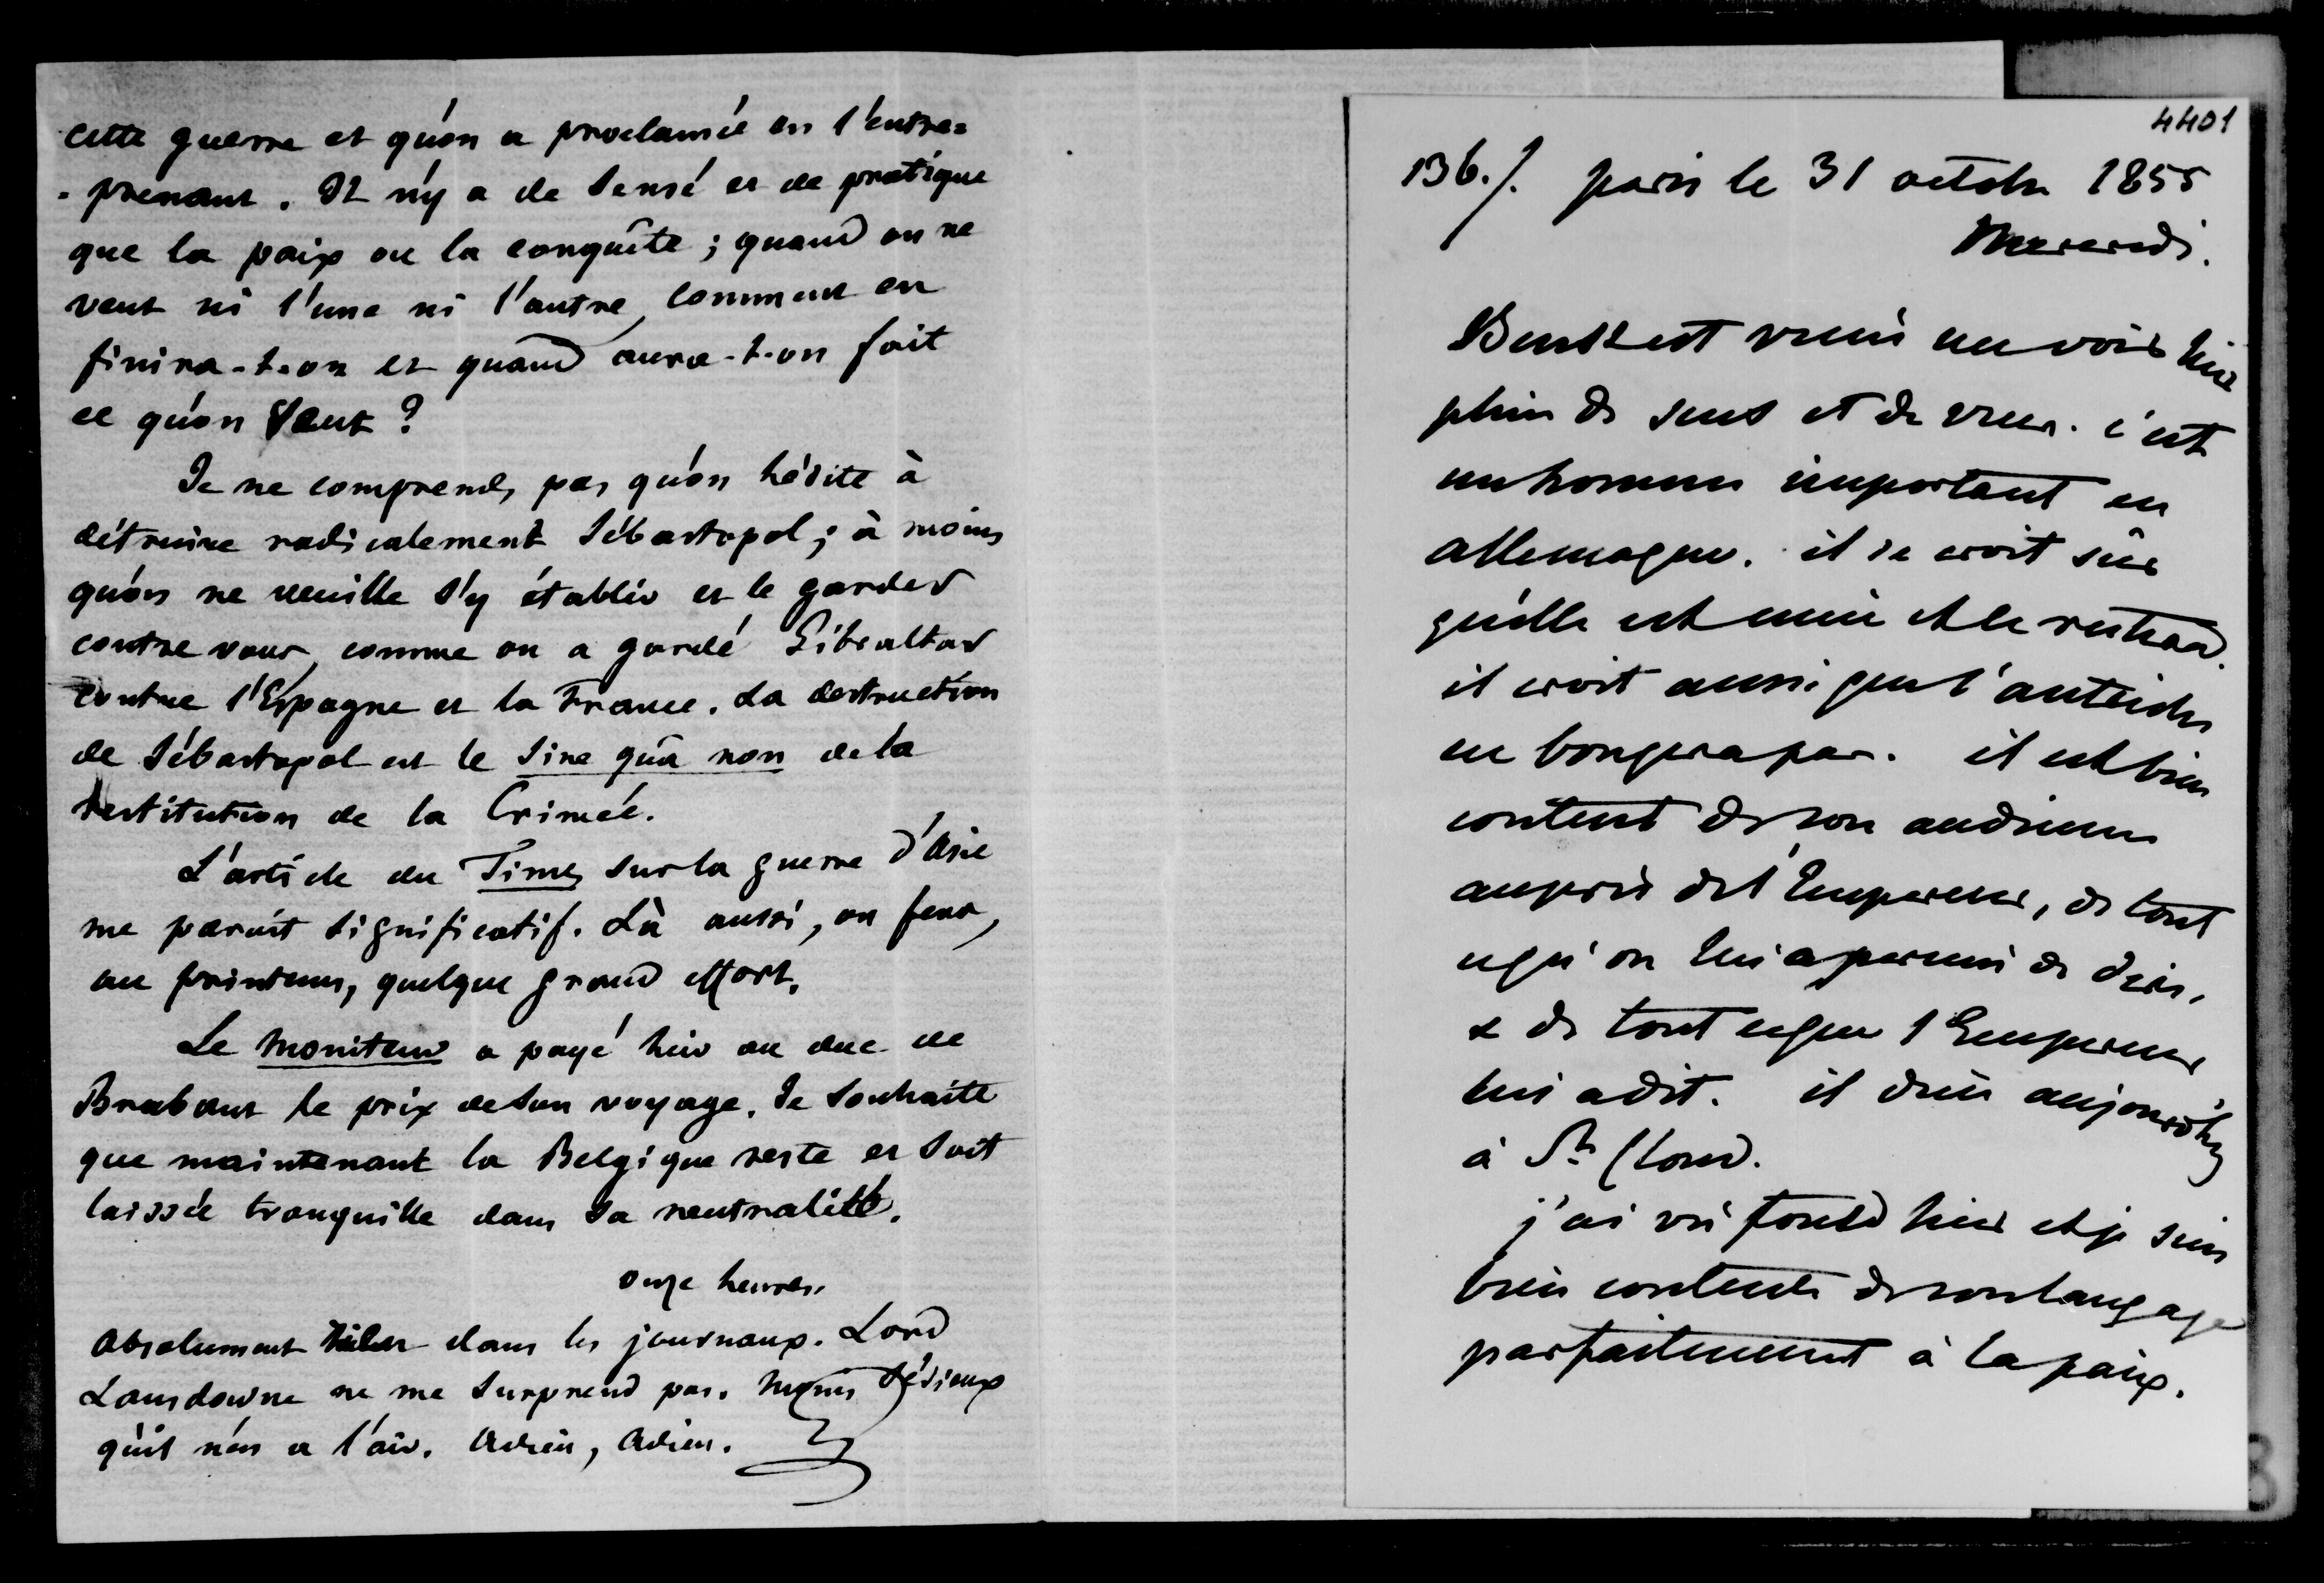 cette guerre et qu'on a proclamée en l'entre=
=prenant. Il n'y a de sensé et de pratique
que la paix ou la conquête ; quand on ne
veut ni l'une ni l'autre, comment en
finira-t-on et quand aura-t-on fait
ce qu'on veut ?
Je ne comprends pas qu'on hésite à
détruire radicalement Sébastopol ; à moins
qu'on ne veuille s'y établir et le garder
contre vous, comme on a gardé Gibraltar
contre l'Espagne et la France. La destruction
de Sébastopol est le sine quâ non de la
restitution de la Crimée.
L'article du Times sur la guerre d'Asie
me paroit significatif. Là aussi, on fera,
au printems, quelque grand effort.
Le Moniteur a payé hier au duc de
Brabant le prix de son voyage. Je souhaite
que maintenant la Belgique reste et soit
laissée tranquille dans sa neutralité.
onze heures.
Absolument dans les journaux. Lord
Lansdowne ne me surprend pas. Moins sérieux
qu'il n'en a l'air. Adieu, adieu.
4401
136./. paris le 31 octobre 1855
Mercredi.
Beust est venu me voir hier
plein de sens et de vues. c'est
un homme important en
allemagne. il se croit sûr
qu'elle est unie et le restera.
il croit aussi que l'autriche
ne bougera pas. il est bien
content de son audience
auprès de l'Empereur, de tout
ce qu'on lui a permis de dire,
& de tout ce que l'Empereur
lui a dit. il dine aujourd'hui
à St Cloud.
j'ai vu fould hier et je suis
bien contente de son langage
parfaitement à la paix.